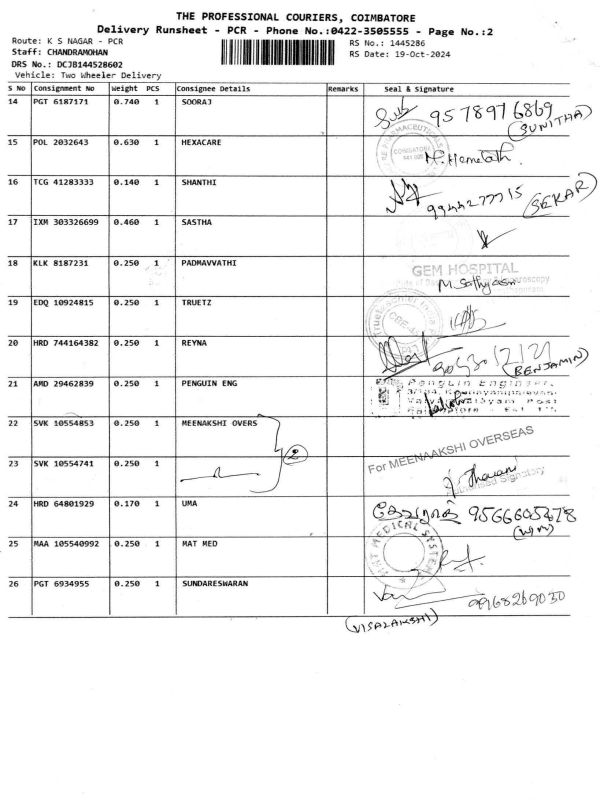 THE PROFESSIONAL COURIERS, COIMBATORE
Delivery Runsheet - PCR - Phone No.:0422-3505555 - Page No.:2
Route: K S NAGAR - PCR
Staff: CHANDRAMOHAN
DRS No.: DCJB144528602
Vehicle: Two Wheeler Delivery
RS No.: 1445286
RS Date: 19-Oct-2024
S No Consignment No Weight PCS Consignee Details Remarks Seal & Signature
14 PGT 6187171 0.740 1 SOORAJ 9578976869
(SUNITHA)
15 POL 2032643 0.630 1 HEXACARE
16 TCG 41283333 0.140 1 SHANTHI 9944277715 (SEKAR)
17 IXM 303326699 0.460 1 SASTHA
18 KLK 8187231 0.250 1 PADMAVVATHI GEM HOSPITAL
19 EDQ 10924815 0.250 1 TRUETZ
20 HRD 744164382 0.250 1 REYNA
(BENJAMIN)
21 AMD 29462839 0.250 1 PENGUIN ENG Penguin Engineer
22 SVK 10554853 0.250 1 MEENAKSHI OVERS
2
For MEENAAKSHI OVERSEAS
23 SVK 10554741 0.250 1
Authorised Signatory
24 HRD 64801929 0.170 1 UMA
25 MAA 105540992 0.250 1 MAT MED
MEDICAL SYSTEM
26 PGT 6934955 0.250 1 SUNDARESWARAN
(VISALAKSHI)